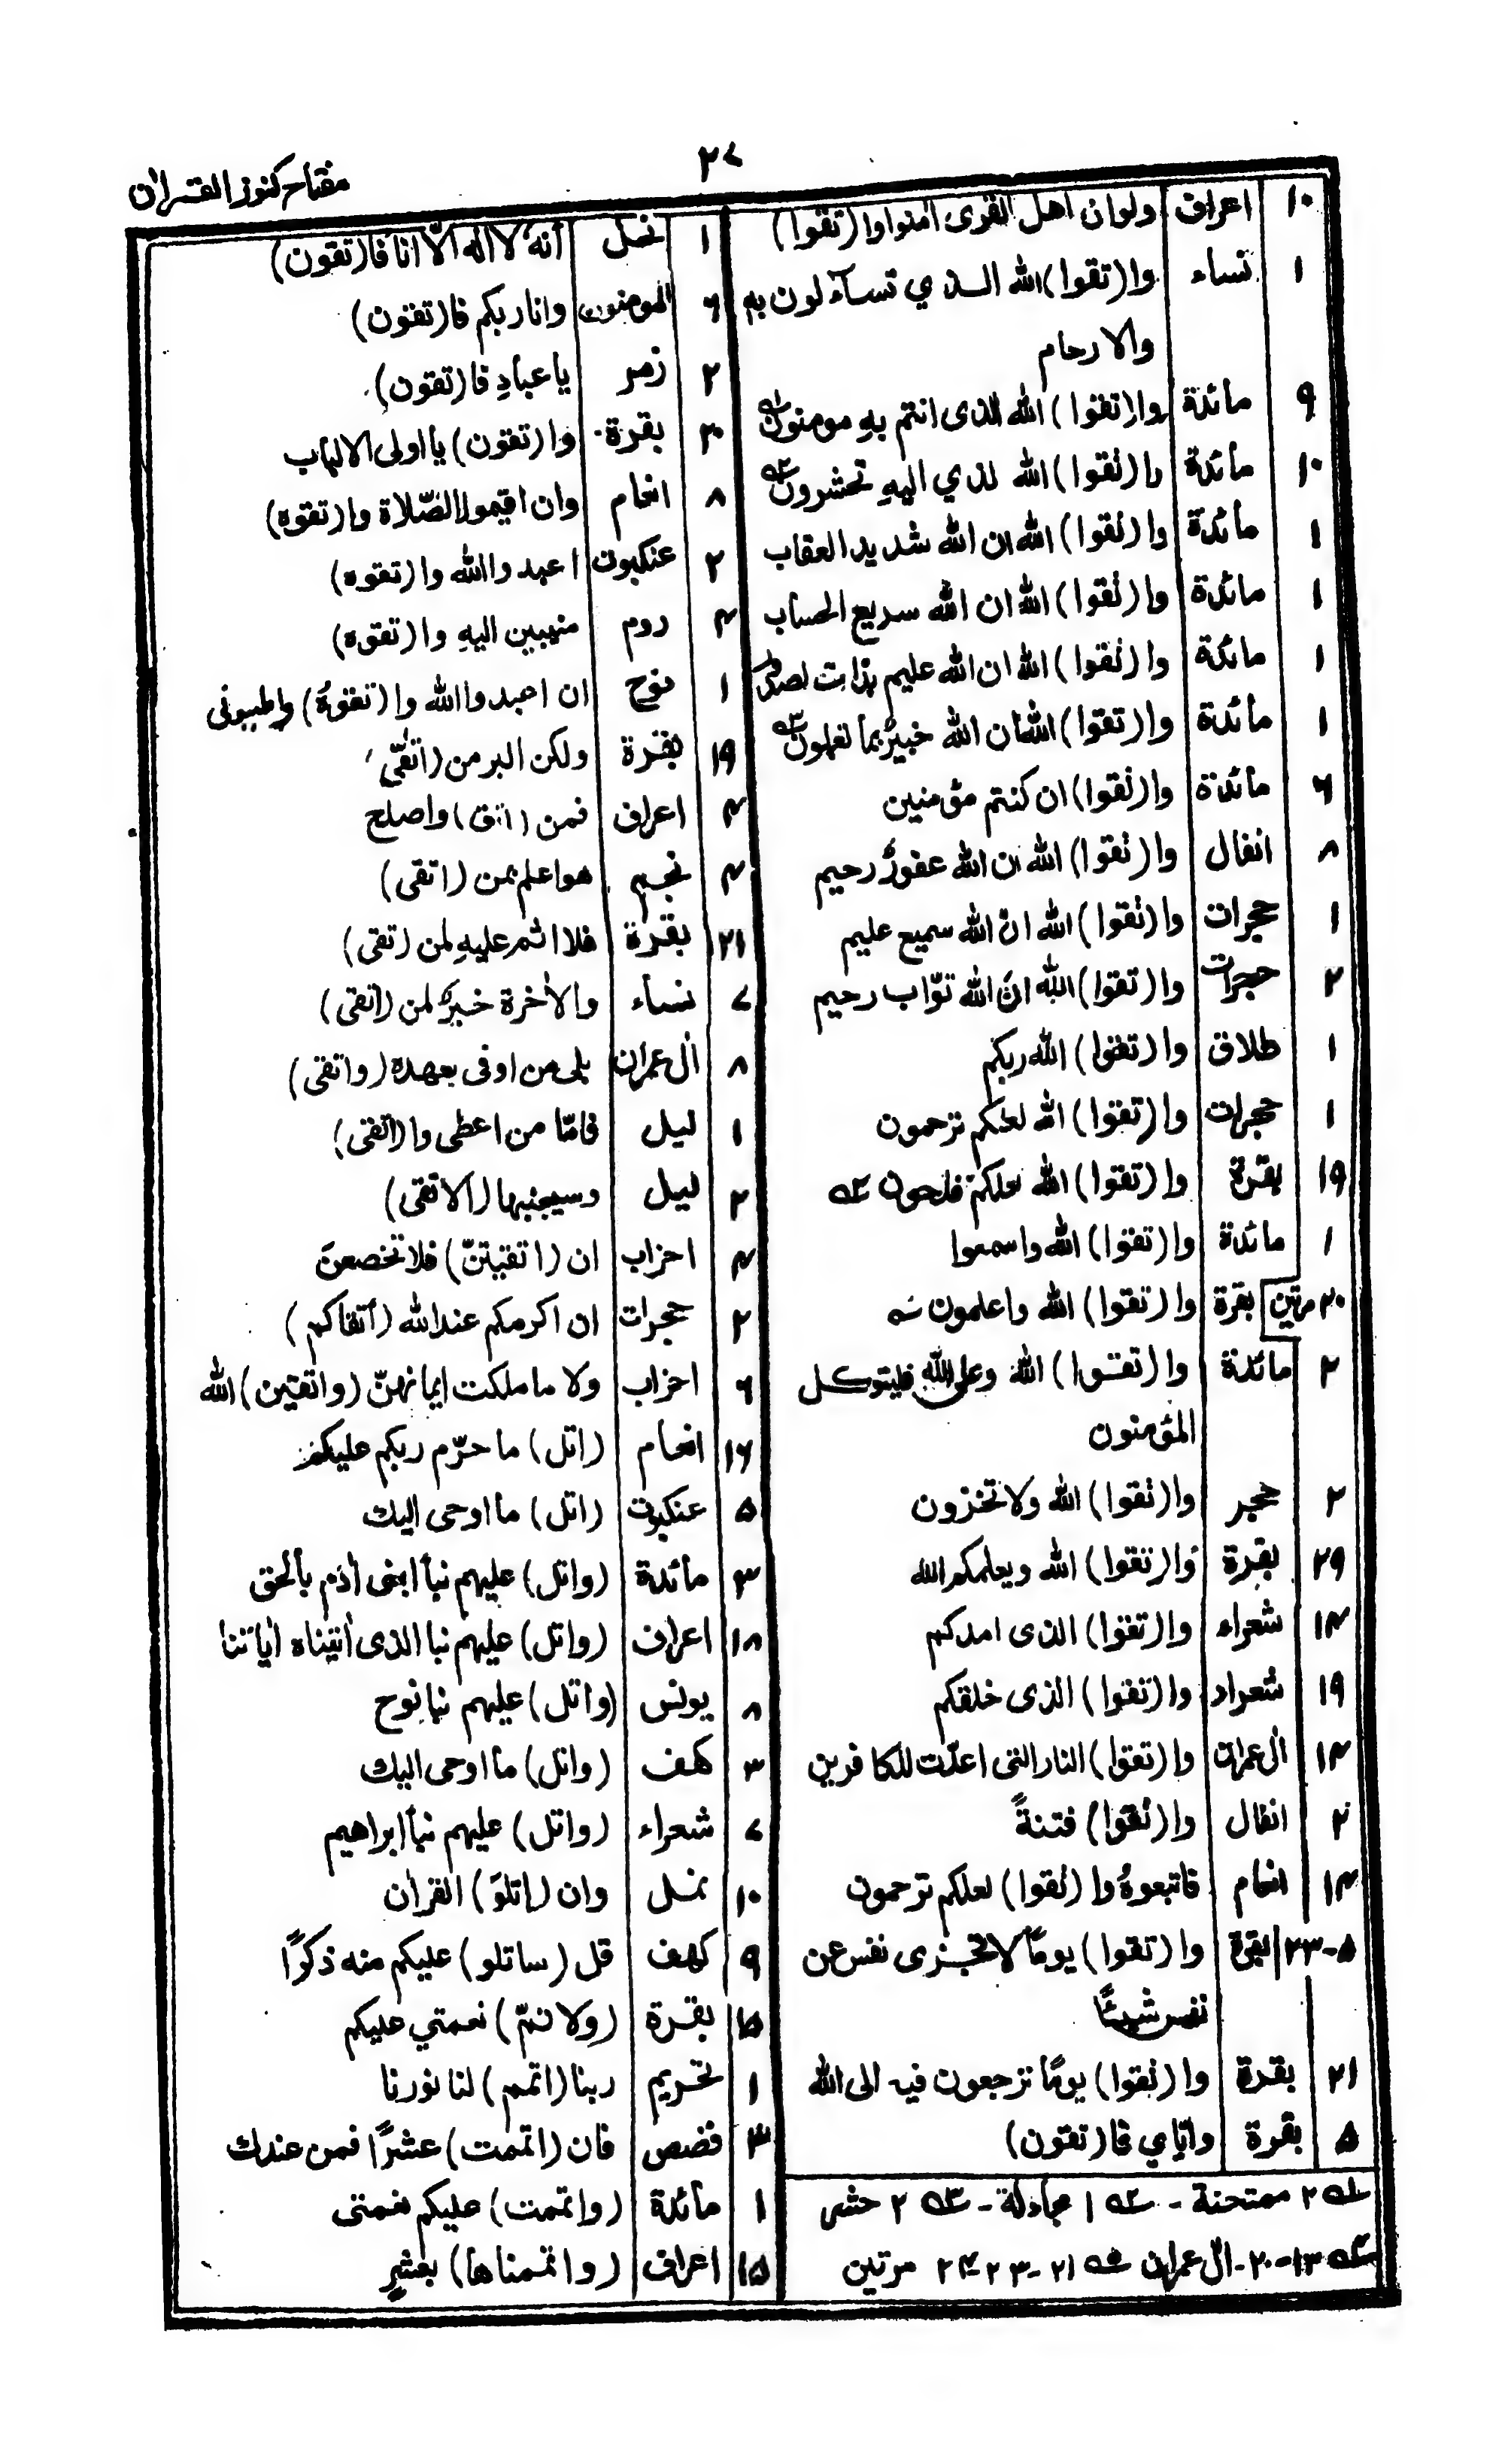 ٢٧
مفتاح كنوز القران
١٠ اعراف ولو ان اهل القرى امنوا وا (تقوا)
١ نساء وا (تقوا) الله الذي تساءلون به
والارحام
٩ مائدة وا (تقوا) الله الذى انتم به مومنون
١٠ مائدة وا (تقوا) الله لذي اليهِ تحشرون
١ مائدة وا (تقوا) الله ان الله شديد العقاب
١ مائدة وا (تقوا) الله ان الله سريع الحساب
١ مائدة وا (تقوا) الله ان الله عليم بذات لصدور
١ مائدة وا (تقوا) الله ان الله خبيرٌ بما تعملون
٦ مائدة وا (تقوا) ان كنتم مؤمنين
٨ انفال وا (تقوا) الله ان الله غفورٌ رحيم
١ حجرات وا (تقوا) الله انّ الله سميع عليم
٢ حجرات وا (تقوا) الله انّ الله توّاب رحيم
١ طلاق وا (تقوا) الله ربكم
١ حجرات وا (تقوا) الله لعلكم ترحمون
١٩ بقرة وا (تقوا) الله لعلكم فلحون
١ مائدة وا (تقوا) الله واسمعوا
٢٠ مرتين بقرة وا (تقوا) الله واعلمون
٢ مائدة وا (تقوا) الله وعلى الله فليتوكل
المؤمنون
٢ حجر وا (تقوا) الله ولا تخزون
٢٩ بقرة وا (تقوا) الله ويعلمكم الله
١٤ شعراء وا (تقوا) الذى امدكم
١٩ شعراء وا (تقوا) الذى خلقكم
١٤ ال عمران وا (تقوا) النار التى اعدّت للكافرين
٢ انفال وا (تقوا) فتنةً
١٤ انعام فاتبعوهُ وا (تقوا) لعلكم ترحمون
٥-٢٣ بقرة وا (تقوا) يومًا لا تجزى نفس عن
نفس شيئًا
٢١ بقرة وا (تقوا) يومًا ترجعون فيه الى الله
٥ بقرة واِيّاي فا (تقون)
٢ ممتحنة - ١ مجادلة - ٢ حشر
١٣-٢٠- ال عمران ٢١-٢٣-٢٤ مرتين
١ نحل انهُ لا اله الّا انا فا (تقون)
٦ المومنون وانا ربكم فا (تقون)
٢ زمر يا عبادِ فا (تقون)
٢٠ بقرة وا (تقون) يا اولى الالباب
٨ انعام وان اقيموا الصّلاة وا (تقوه)
٢ عنكبوت اعبدوا الله وا (تقوه)
٤ روم منيبين اليهِ وا (تقوه)
١ نوح ان اعبدوا الله وا (تقوهُ) واطيعونى
١٩ بقرة ولكن البر من (اتقى)
٤ اعراف فمن (اتق) واصلح
٤ نجم هو اعلم بمن (اتقى)
٢١ بقرة فلا اثم عليهِ لمن (تقى)
٧ نساء والاخرة خيرٌ لمن (اتقى)
٨ ال عمران بلى من اوفى بعهده (واتقى)
١ ليل فامّا من اعطى وا (اتقى)
٢ ليل وسيجنبها (الاتقى)
٤ احزاب ان (اتقيتنّ) فلا تخضعن
٢ حجرات ان اكرمكم عند الله (أتقاكم)
٦ احزاب ولا ما ملكت ايمانهنّ (واتقين) الله
١٦ انعام (اتل) ما حرّم ربكم عليكم
٥ عنكبوت (اتل) ما اوحى اليك
٣ مائدة (واتل) عليهم نبأ ابنى اٰدم بالحق
١٨ اعراف (واتل) عليهم نبا الذى اٰتيناه اٰياتنا
٨ يونس (واتل) عليهم نبا نوح
٣ كهف (واتل) ما اوحى اليك
٧ شعراء (واتل) عليهم نبأ ابراهيم
١٠ نمل وان (اتلوَ) القران
٩ كهف قل (ساتلو) عليكم منه ذكرًا
١٥ بقرة (ولا تمّ) نعمتي عليكم
١ تحريم ربنا (اتمم) لنا نورنا
٣ قصص فان (اتممت) عشرًا فمن عندك
١ مائدة (واتممت) عليكم نعمتى
١٥ اعراف (واتممناها) بعشرٍ